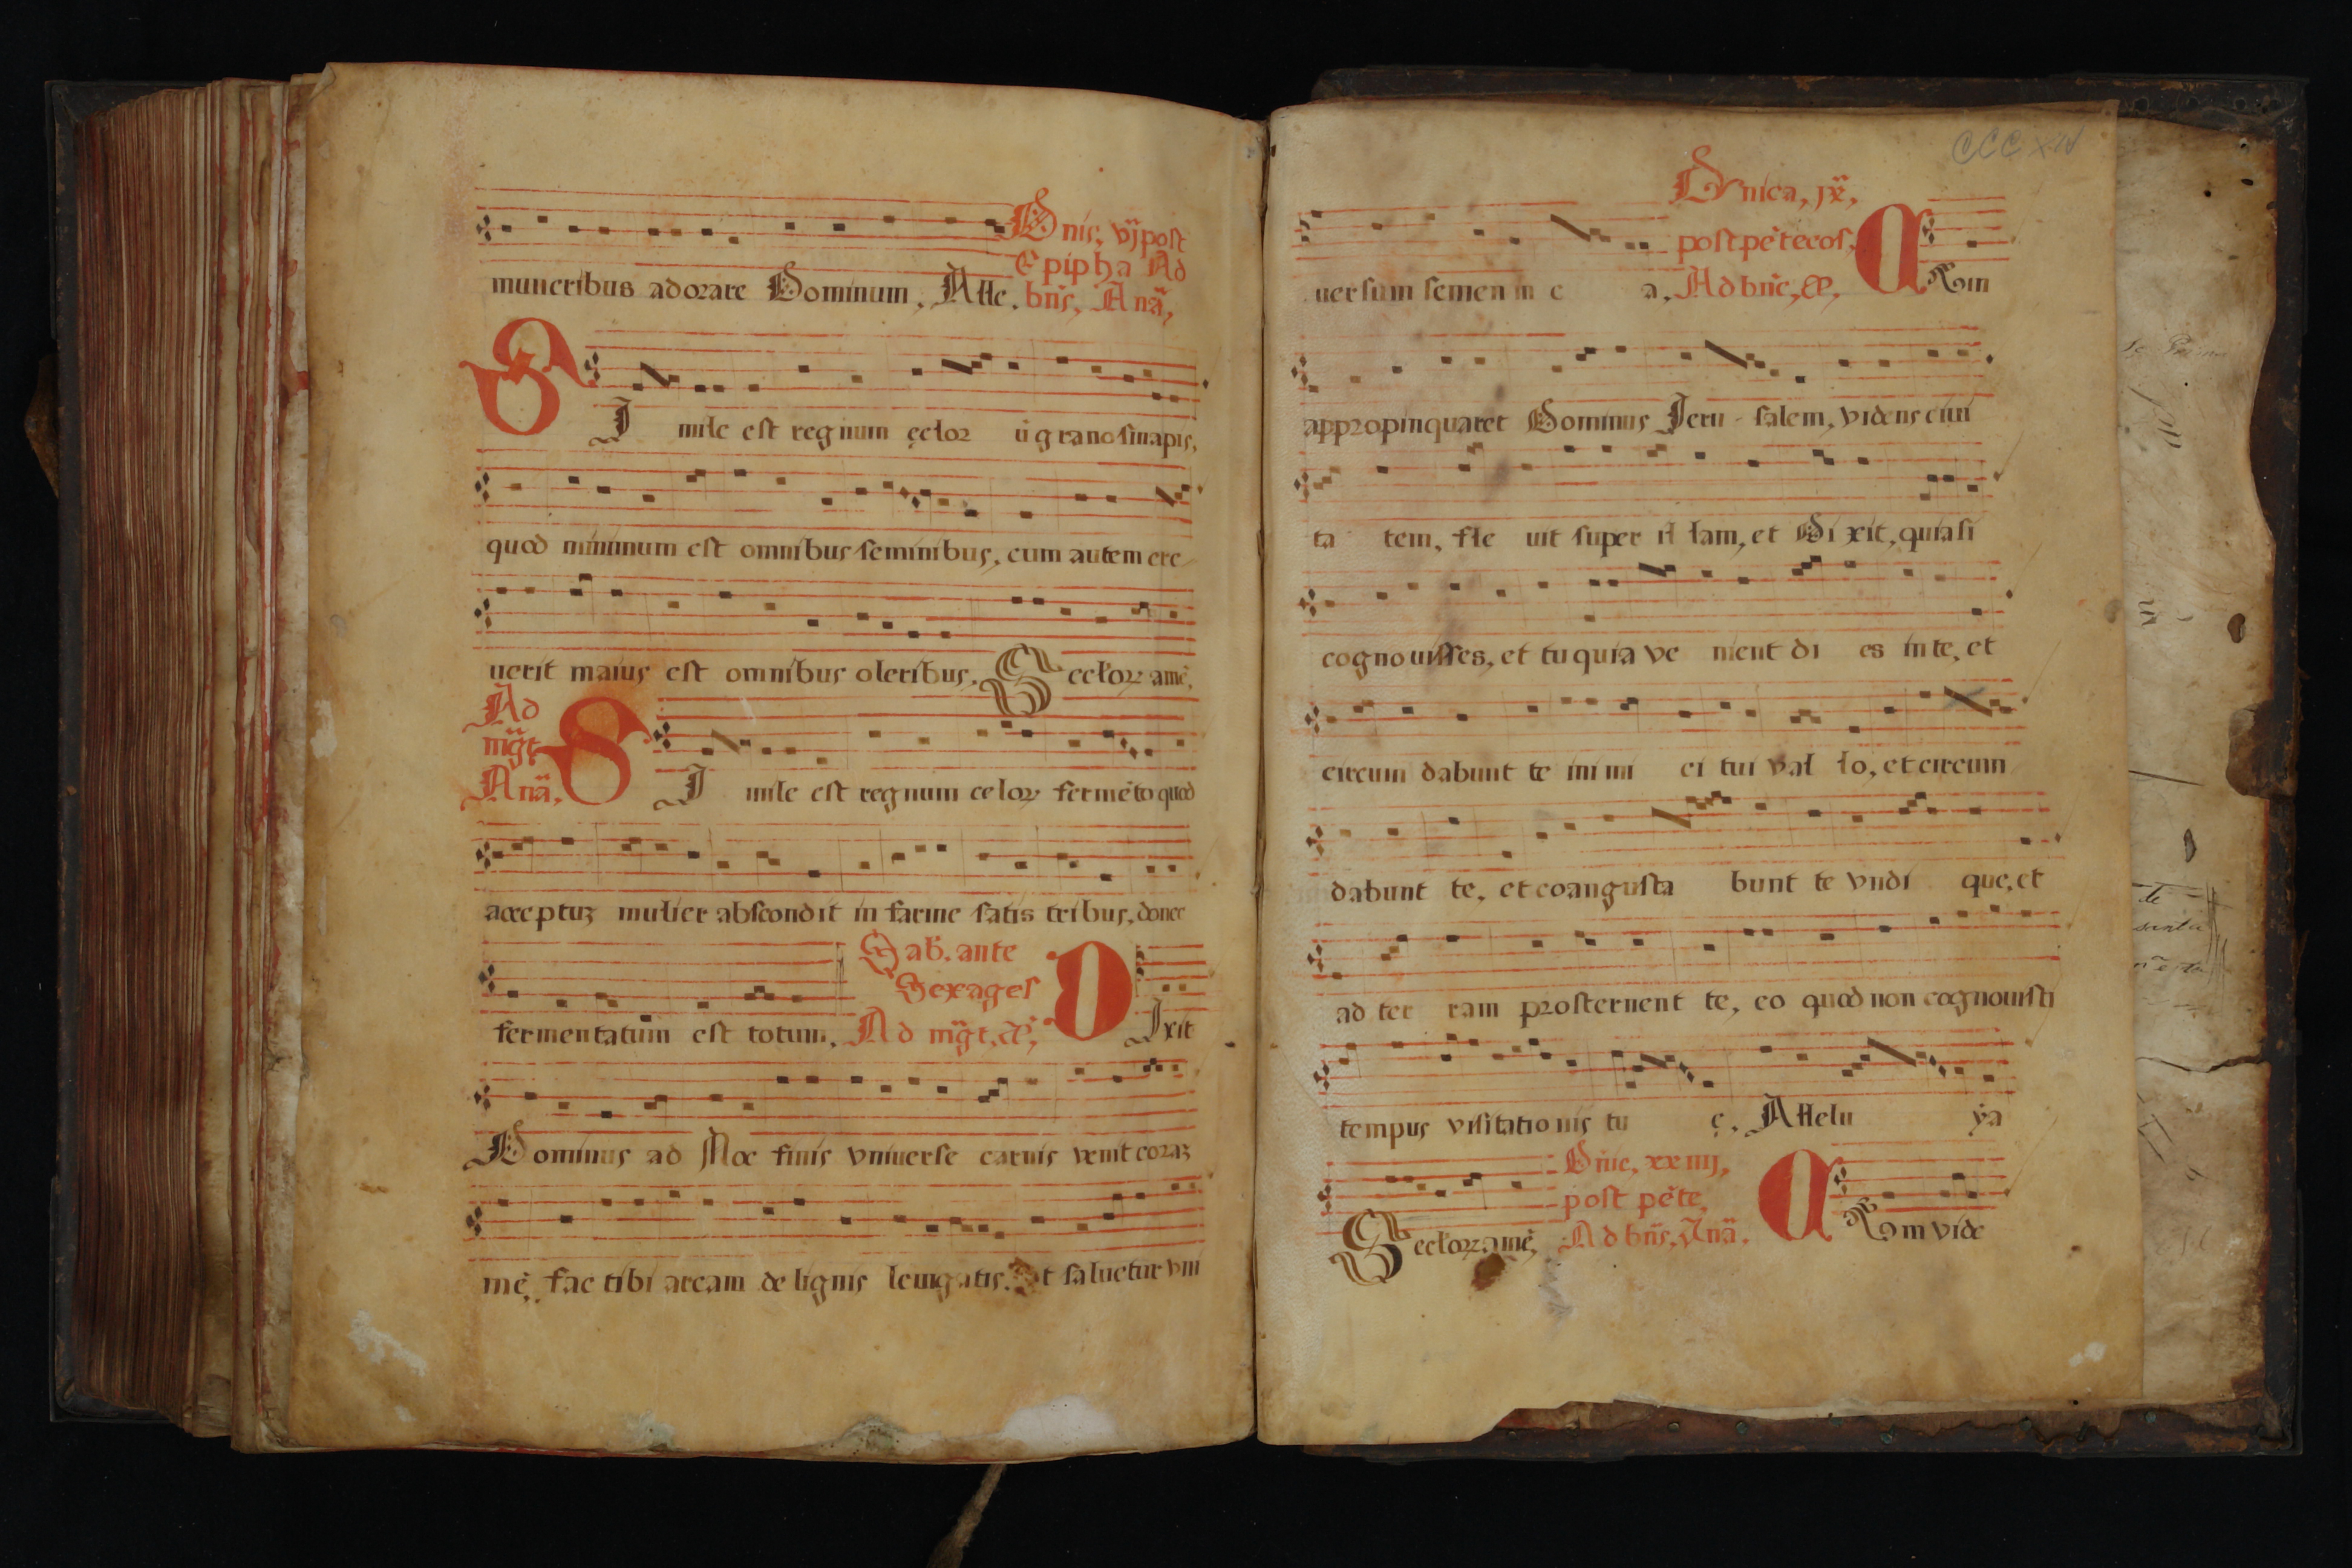 muneribus adorare Dominum, Alle.
Dnis, vij post
Epipha Ad
bñs, Anã,
SImile est regnum cełor ũ grano sinapis,
quod minimum est omnibus seminibus, cum autem cre
uerit maius est omnibus oleribus. Secłoꝝ amẽ.
Ad
mg̃t
Anã,
SImile est regnum celoꝝ fermẽto quod
acceptuꝫ mulier abscondit in farine satis tribus, donec
fermentatum est totum.
Sab. ante
Sexages
Ad mg̃t, Ã,
DIxit
Dominus ad Noe finis vniuerse carnis venit coraꝫ
mẽ, fac tibi arcam de lignis leuigatis. Vt saluetur vni
CCCXIV
uersum semen in e a.
Dnica, jx,
post pẽtecos,
Ad bñc, Æ,
CVm
appropinquaret Dominus Jeru-salem, videns ciui
ta tem, fle uit super il lam, et Di xit, quia si
cognouisses, et tu quia ve nient di es in te, et
circum dabunt te inimi ci tui val lo, et circum
dabunt te, et coangusta bunt te vndi que, et
ad ter ram prosternent te, eo quod non cognouisti
tempus visitationis tu ę. Allelu ya
Secłoꝝ amẽ,
Dñie, xxiiij,
post pẽte,
Ad bñs, Anã.
CVm vide